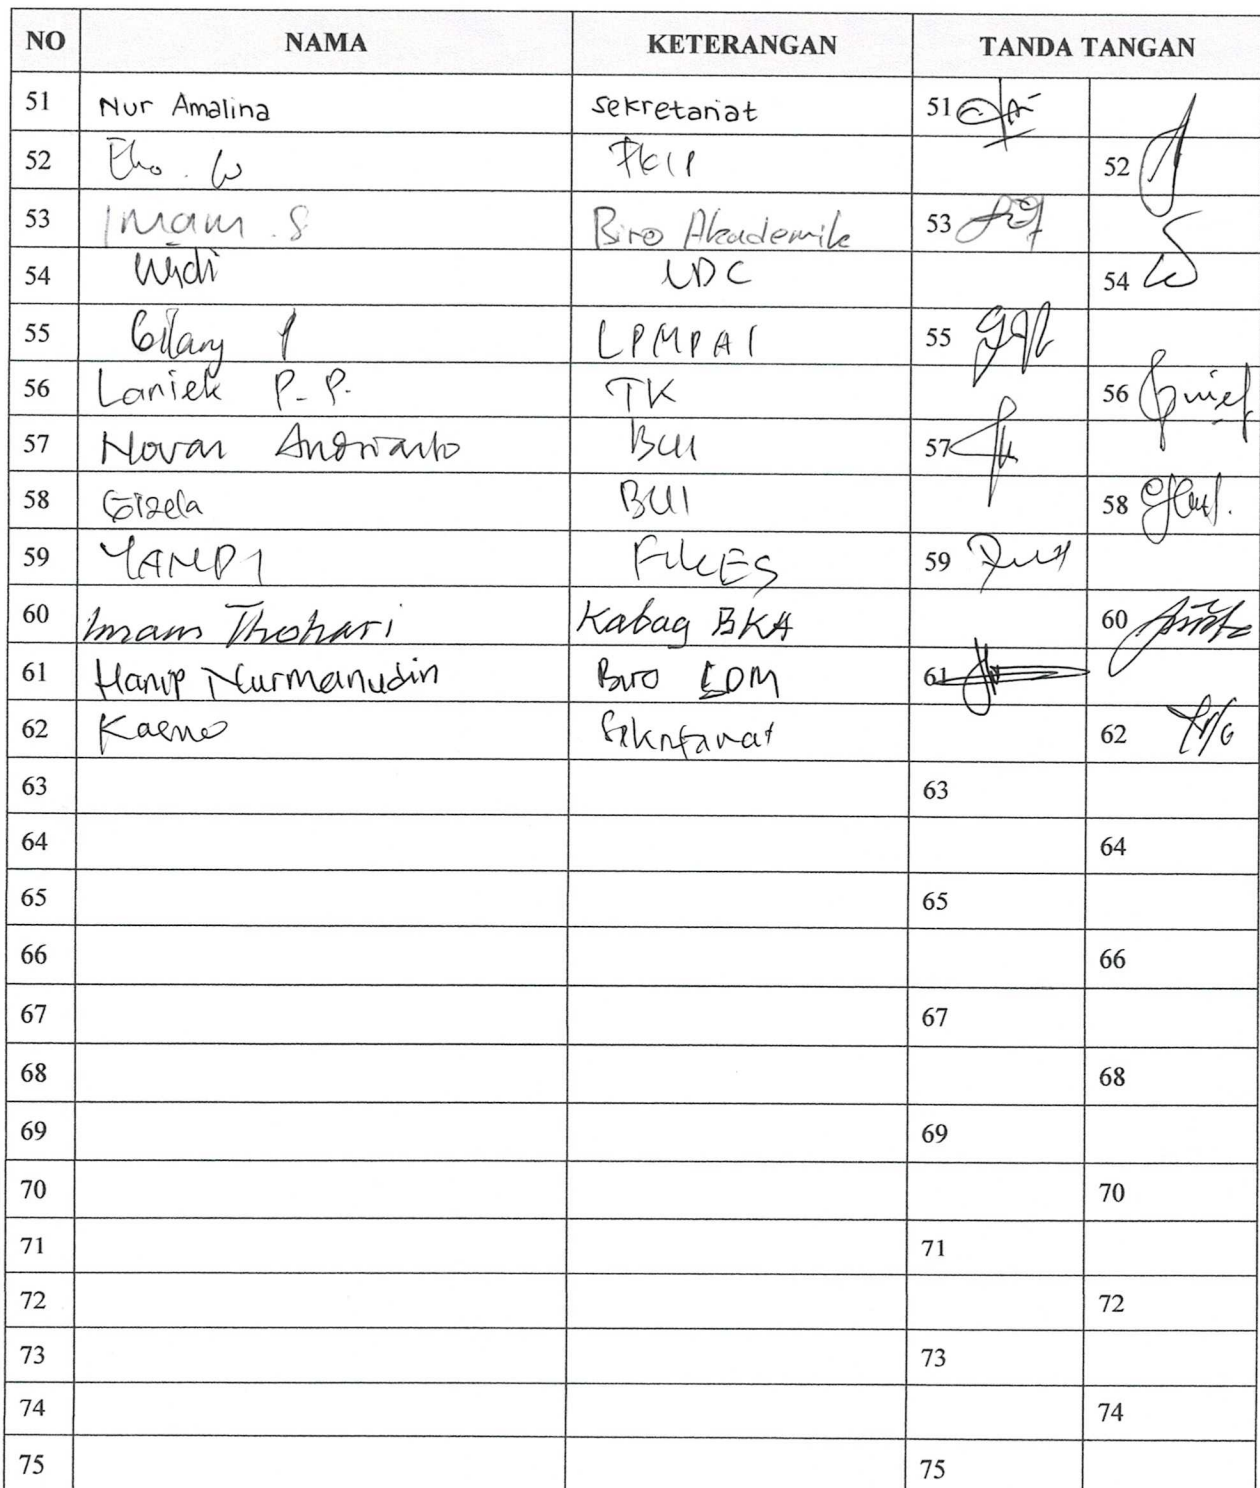 NO NAMA KETERANGAN TANDA TANGAN
51 Nur Amalina sekretariat 51
52 Eko . W FKIP 52
53 Imam . S Biro Akademik 53
54 Widi UDC 54
55 Gilang P LPMPAI 55
56 Laniek P. P. TK 56
57 Novan Andrianto BUI 57
58 Gizela BUI 58
59 YANDI FIKES 59
60 Imam Thohari Kabag BKA 60
61 Hanip Nurmanudin Biro SDM 61
62 Sekretariat 62
63 63
64 64
65 65
66 66
67 67
68 68
69 69
70 70
71 71
72 72
73 73
74 74
75 75